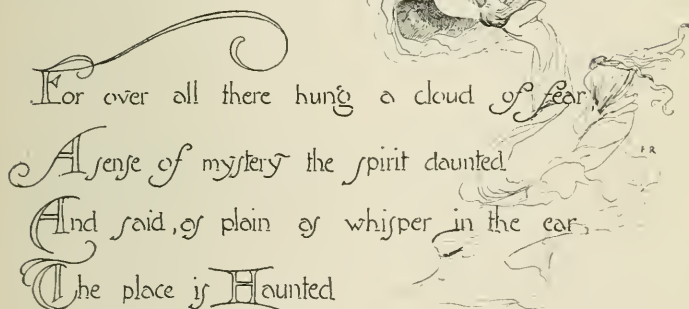 For over all there hung a cloud of fear,
A sense of mystery the spirit daunted
And said, as plain as whisper in the ear,
The place is Haunted
F R